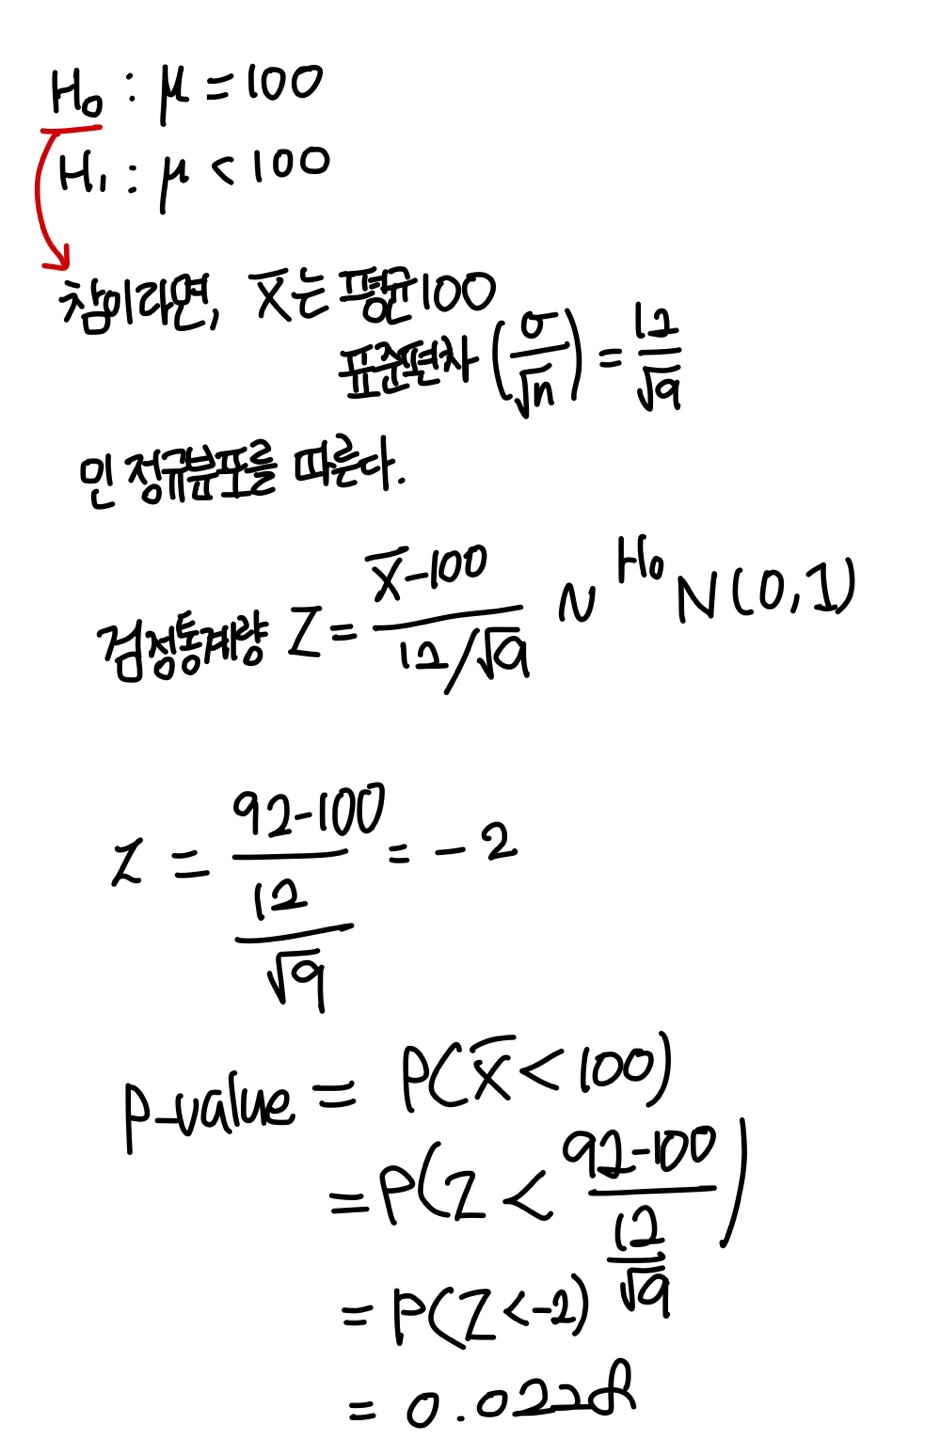 H₀ : μ = 100
H₁ : μ < 100
참이라면, X̅는 평균100
표준편차 (σ/√n) = 12/√9
인 정규분포를 따른다.
검정통계량 Z = (X̅-100)/(12/√9) ~ᴴ⁰ N(0,1)
Z = (92-100)/(12/√9) = -2
P-value = P(X̅ < 100)
= P(Z < (92-100)/(12/√9))
= P(Z<-2)
= 0.0228